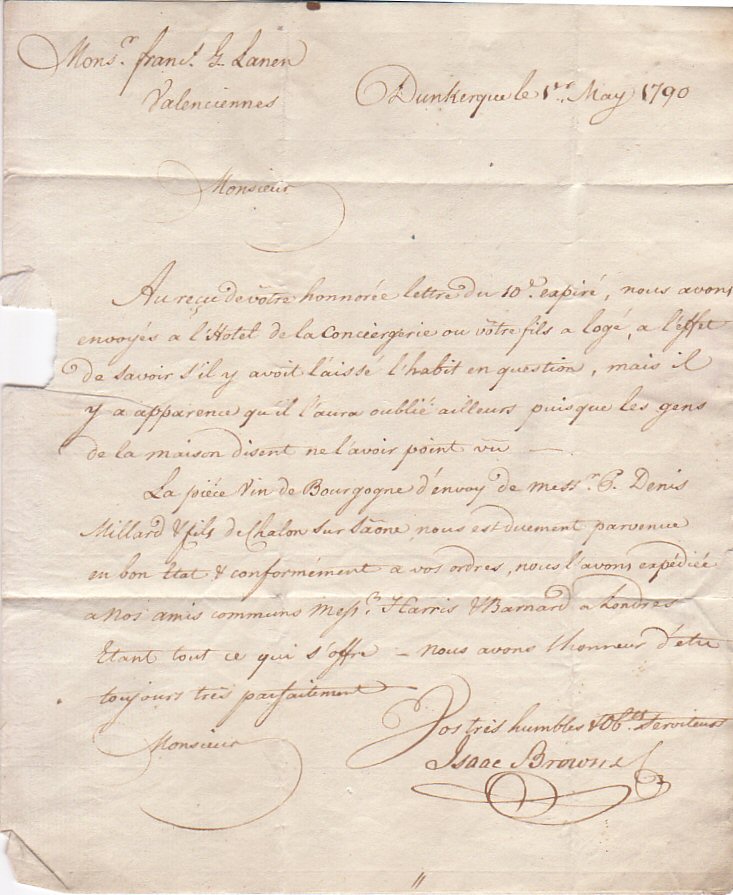 Mons.r franc.s G. Lanen
Valenciennes
Dunkerque le 1er May 1790
Monsieur
Au reçu de vôtre honnorée lettre du 10e expiré, nous avons
envoyés a l'Hotel de la Conciergerie ou vôtre fils a logé, a l'éffet
de savoir s'il y avoit laissé l'habit en question, mais il
y a apparence qu'il l'aura oublié ailleurs puisque les gens
de la maison disent ne l'avoir point vû —
La piéce Vin de Bourgogne d'envoy de Mess.rs P. Denis
Millard & fils de Chalon sur Saône nous est duement parvenue
en bon Etat & conformément a vos ordres, nous l'avons expédiée
a nos amis communs Mess.rs Harris & Barnard a Londres
Etant tout ce qui s'offre — nous avons l'honneur d'etre
toujours trés parfaitement
Monsieur
Vos trés humbles & Ob.ts Serviteurs
Isaac Brown & C